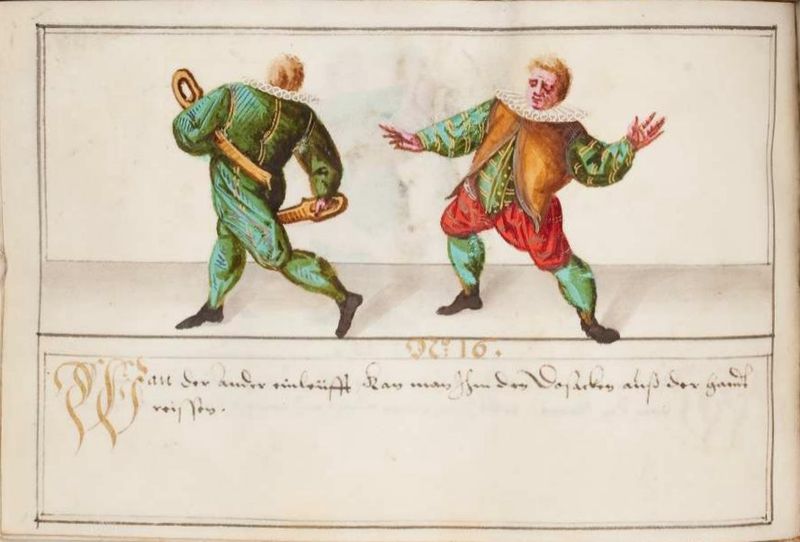 No: 16.
Wan der Ander einleüfft Kan man Ihm den Dusäcken auß der handt
reissen.